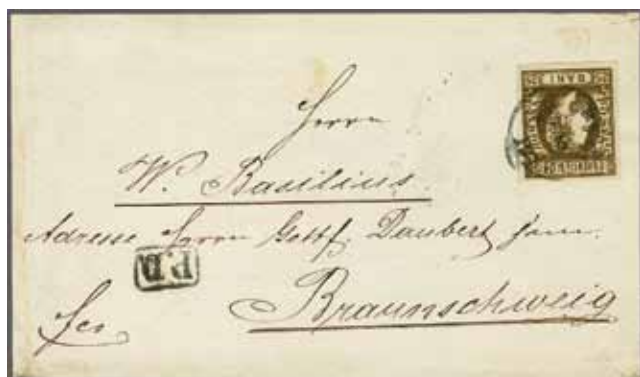 Herrn
W. Basilius.
Adresse Herrn Gottf. Daubert jun.
P.D.
fco
Braunschweig
BANI